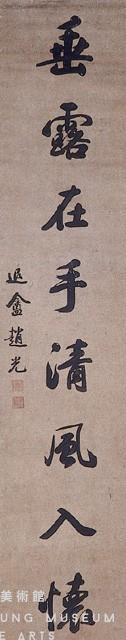 垂露在手清風入懷
退盦趙光
美術館
UNG MUSEUM
E ARTS